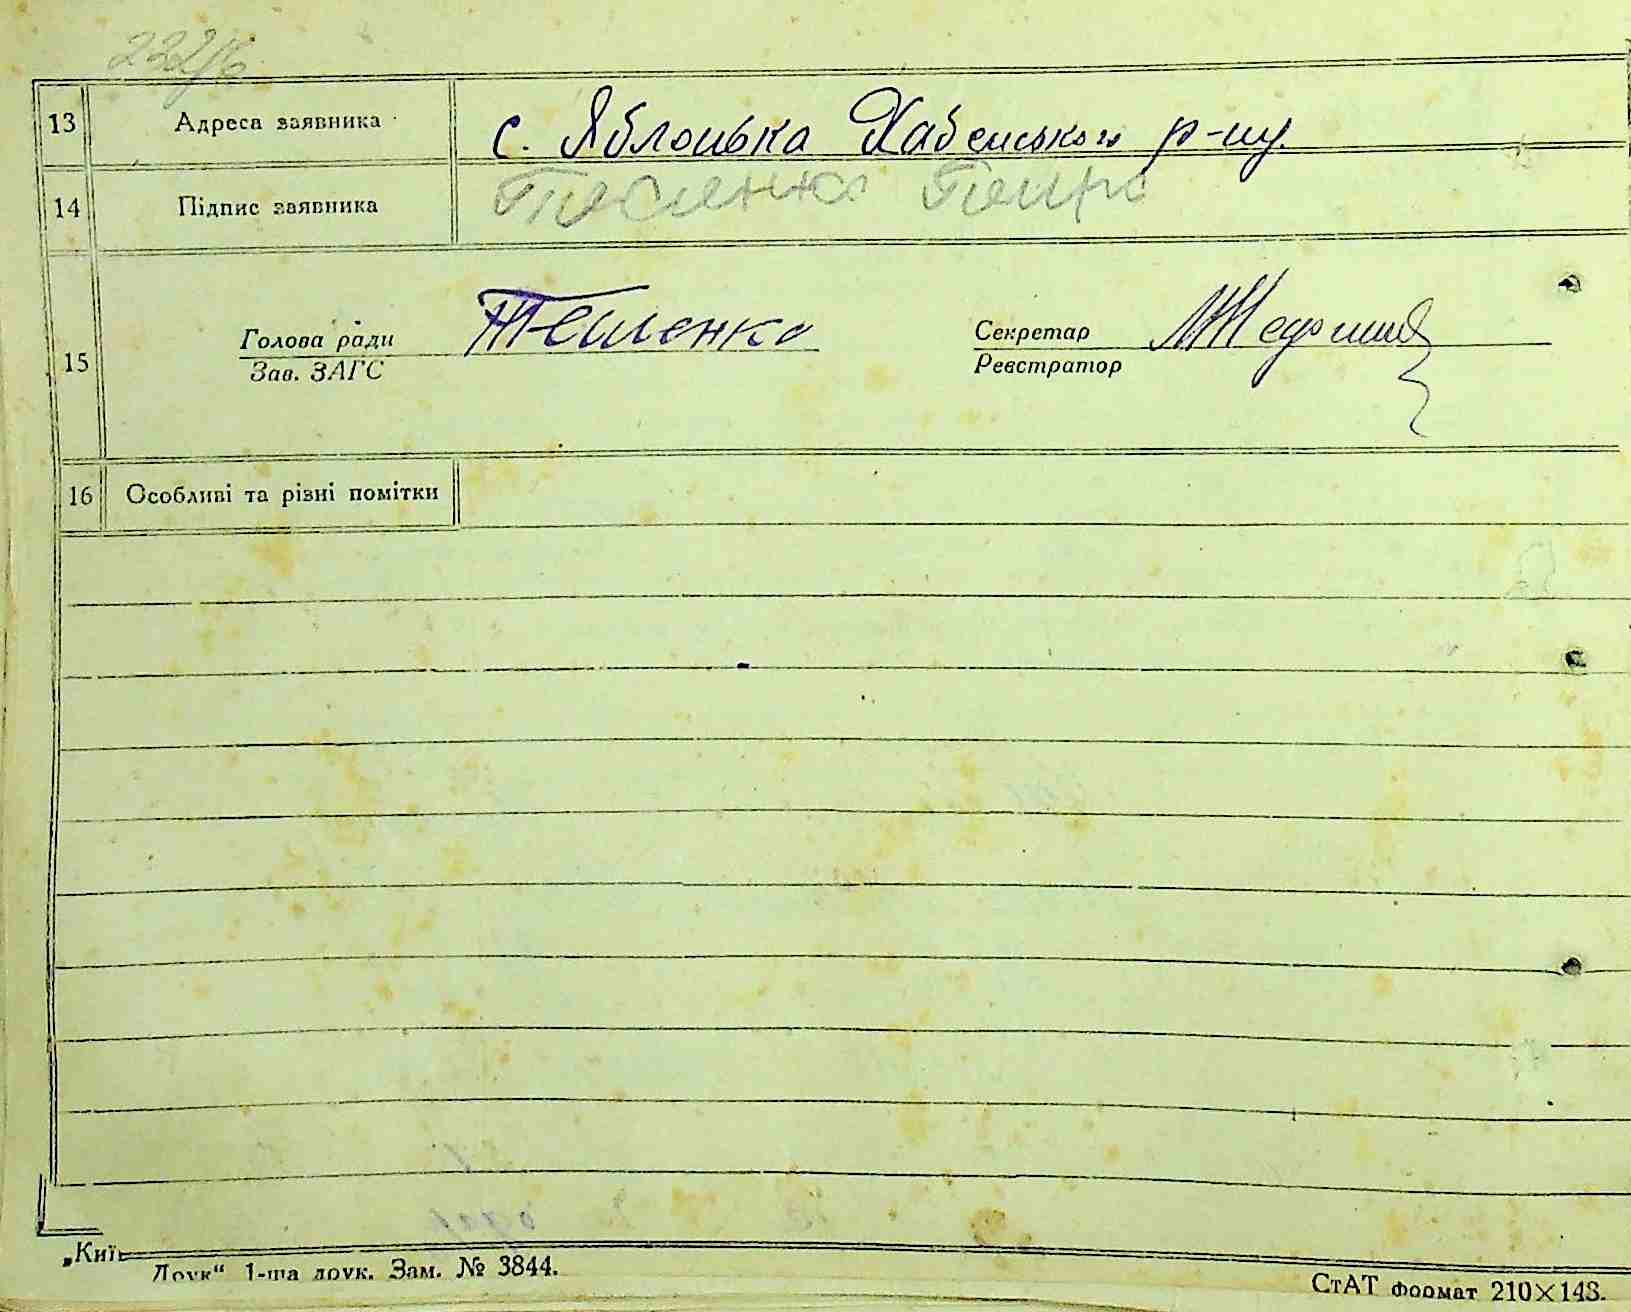 222/6
13 Адреса заявника с. Яблонька Хабенського р-ну.
14 Підпис заявника
15 Голова ради Тешенко Секретар
Зав. ЗАГС Реєстратор
16 Особливі та різні помітки
„Київ
Друк“ 1-ша друк. Зам. № 3844.
СтАТ формат 210×148.